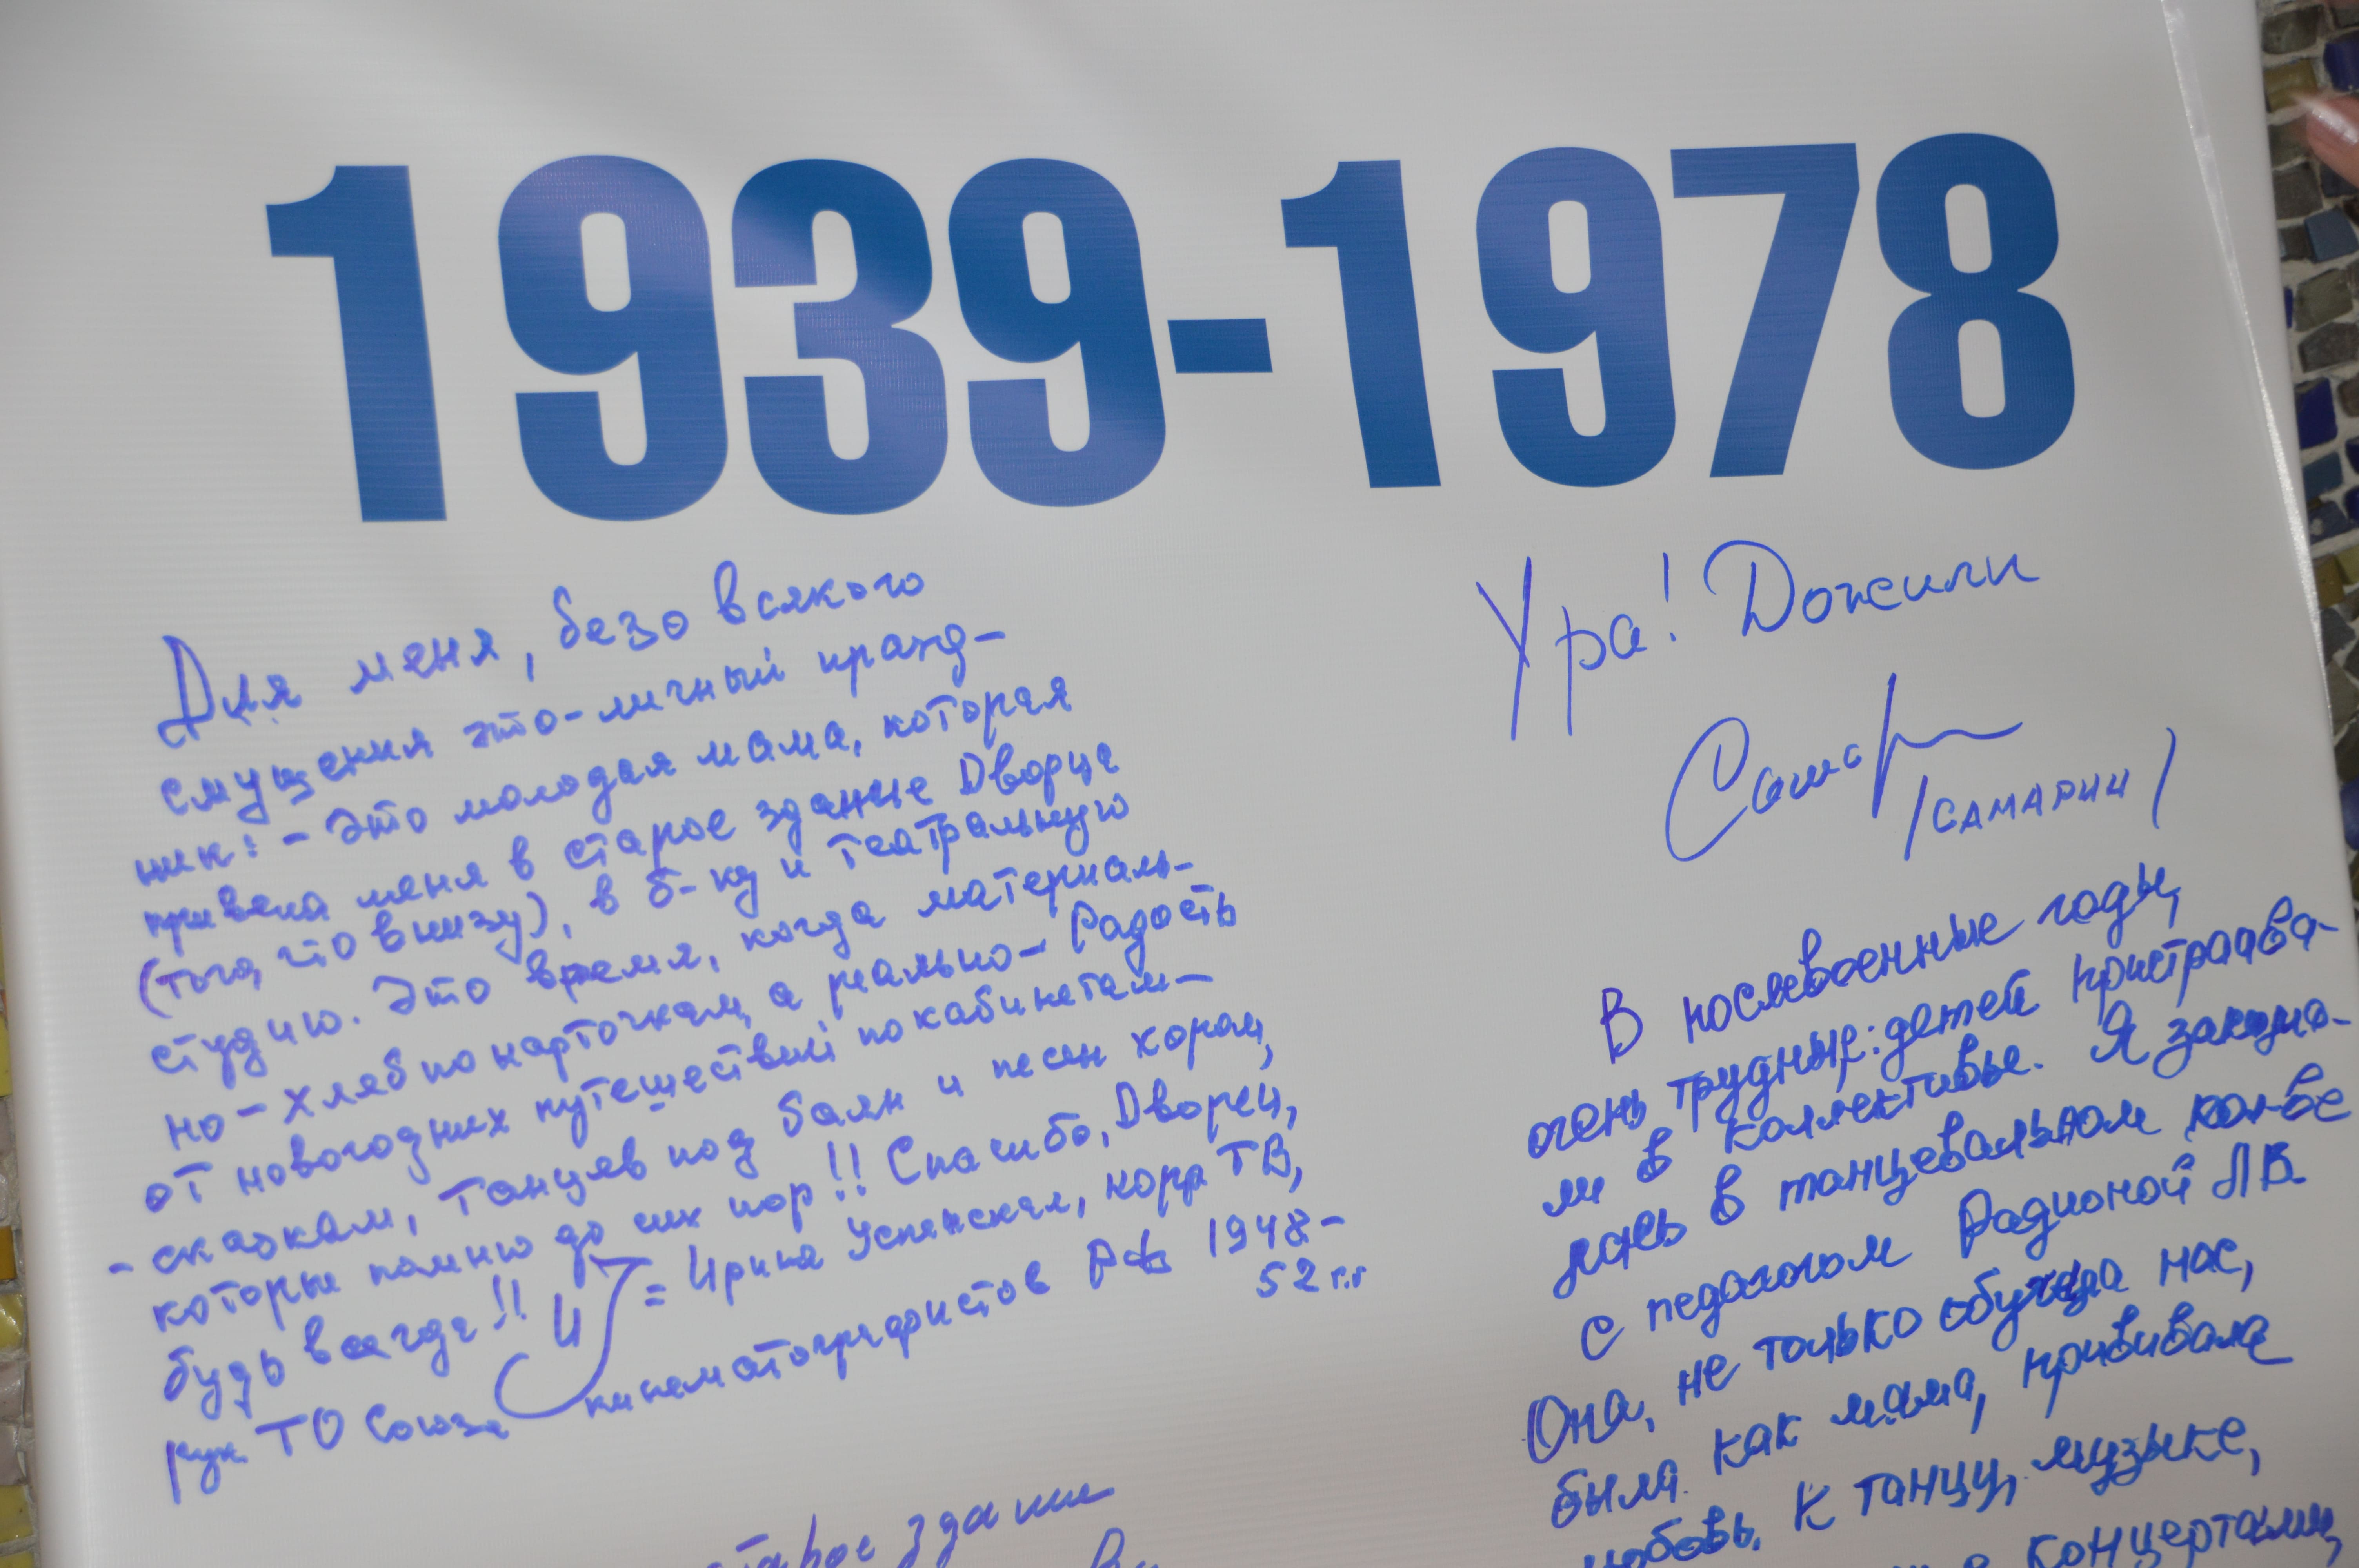 1939-1978
Для меня, безо всякого
смущения это-личный празд-
ник: - Это молодая мама, которая
привела меня в старое здание Дворца
(того, что внизу), в б-ку и театральную
студию. Это время, когда материаль-
но-хлеб по карточкам, а реально- Радость
от новогодних путешествий по кабинетам-
- сказкам, Танцев под баян и песен хором,
которые помню до сих пор!! Спасибо, Дворец,
будь всегда!! = Ирина Успенская, корр. ТВ,
рук. ТО Союза кинематографистов РФ 1948-
52 г.г
старое здание
Ура! Дожили
/САМАРИН/
В послевоенные годы,
очень трудные: детей пристраива-
ли в коллективы. Я занима-
лась в танцевальном кол-ве
с педагогом Радионой Л.В.
Она, не только обучала нас,
была как мама, прививала
любовь к танцу, музыке,
концертами,